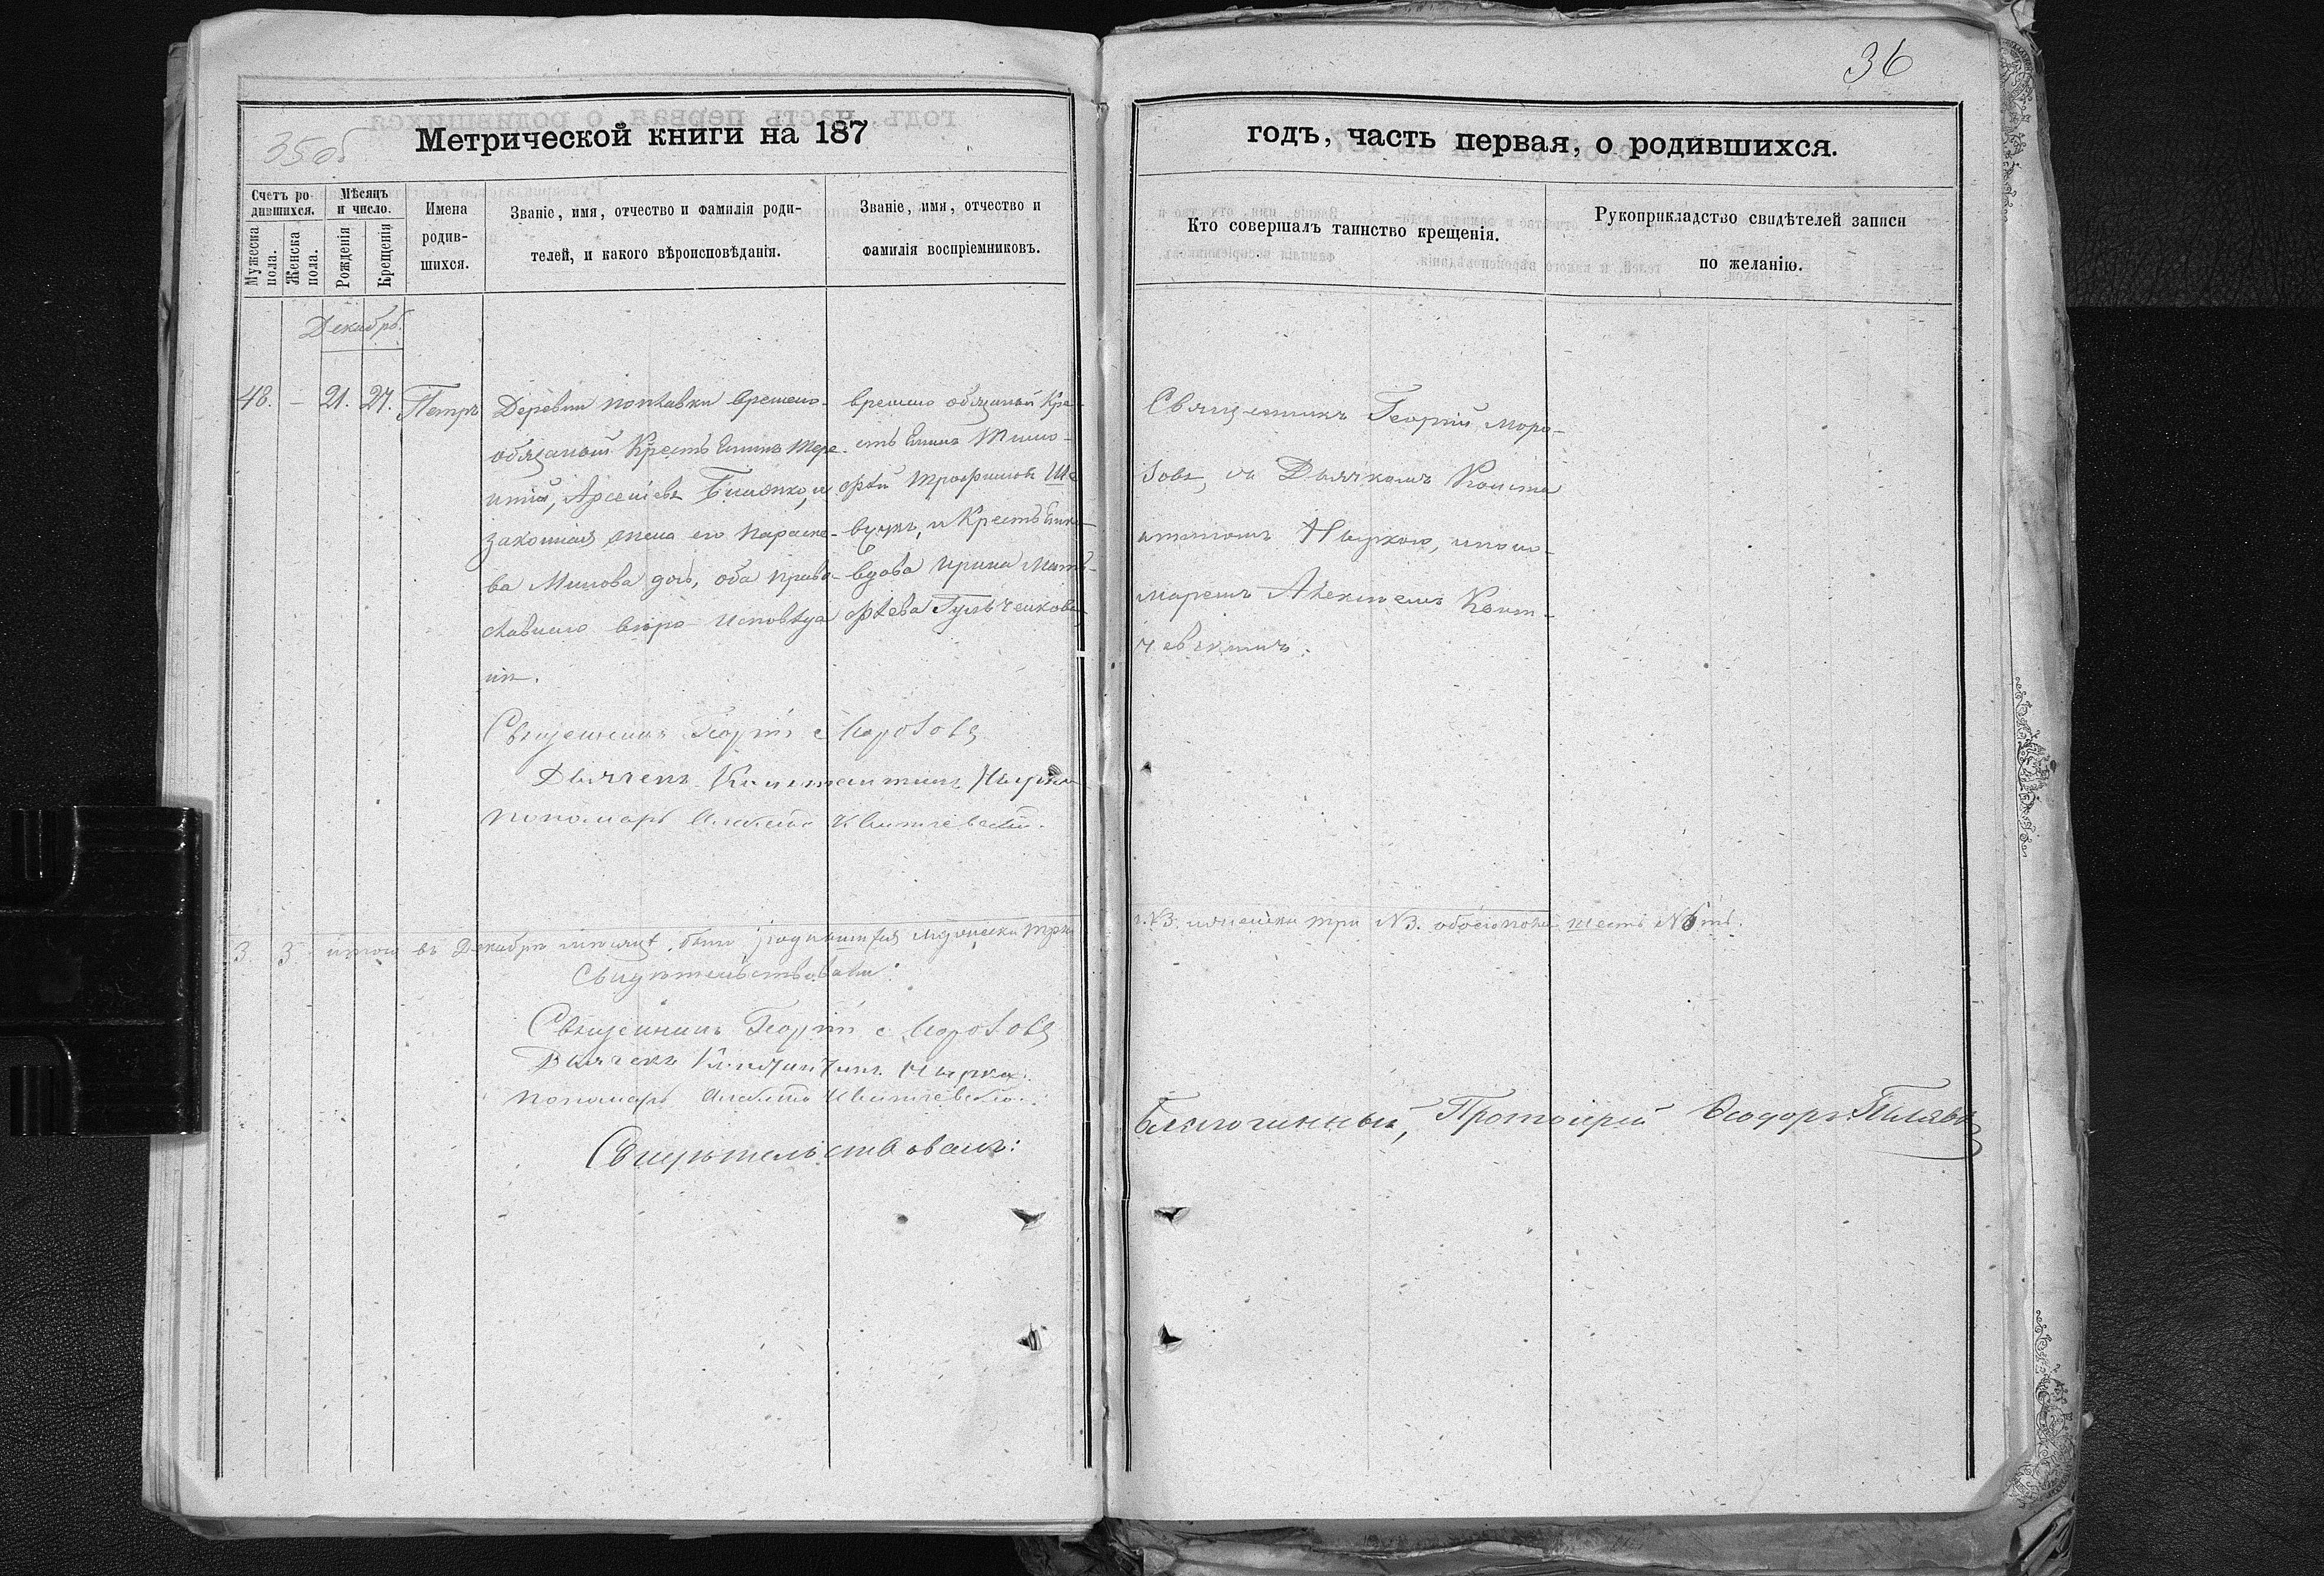 36
35об
Метрической книги на 187
годъ, часть первая, о родившихся.
Счетъ родившихся.
Мужеска пола.
Женска пола.
Мѣсяцъ и число.
Рожденія
Крещенія
Имена
родив-
шихся.
Званіе, имя, отчество и фамилія роди-
телей, и какого вѣроисповѣданія.
Званіе, имя, отчество и
фамилія воспріемниковъ.
Кто совершалъ таинство крещенія.
Рукоприкладство свидѣтелей записи
по желанію.
Декабрь.
48. – 21. 27. Петръ
Деревни временно-
обязаный Крестьянинъ Тере-
нтій, Арсеніевъ и
законная жена его Параске-
ва Минова дочь, оба право-
славнаго вѣро исповѣда
ія.
временно обязаный Кре-
стьянинъ Тимо-
фѣй Трофимовъ Ше
вчукъ, и Крестьянка
вдова Ирина Матѣ-
фѣева Гульченкова,
Священникъ Георгій Моро-
зовъ, съ Дьячкомъ Конста
нтиномъ Ныркою, и поно-
маремъ Алексѣемъ Квит-
чевскимъ.
Священникъ Георгій Морозовъ
Дьячекъ Константинъ Нырка
Пономарь Алексѣй Квитчевскій.
3. 3. итого въ Декабрѣ мѣсяцѣ было родившихся мужеска три
№3. женска три №3. обоего пола шесть №6ть.
Свидѣтельствовали:
Священникъ Георгій Морозовъ
Дьячекъ Константинъ Нырка.
Пономарь Алексѣй Квитчевскій.
Свидѣтельствовалъ:
Благочинный, Протоіерей Ѳеодоръ